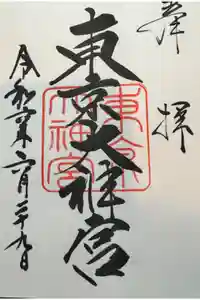 奉拝
東京大神宮
東京大神宮
令和六年六月二十九日